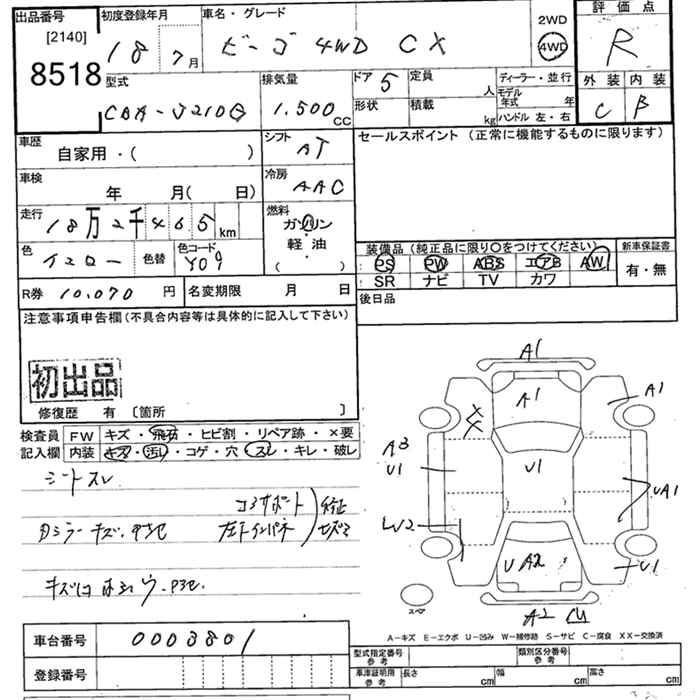 出品番号
[2140]
8518
初度登録年月
18 7月
車名・グレード
ビーゴ 4WD CX
2WD
4WD
評価点
R
外装 内装
C B
型式
CBA-J210G
排気量
1.500cc
ドア 5
定員 人
形状
積載 kg
ディーラー・並行
モデル年式 年
ハンドル 左・右
車歴
自家用・( )
シフト
AT
セールスポイント(正常に機能するものに限ります)
車検
年 月( 日)
冷房
AAC
走行
18万2千465km
燃料
ガソリン
・
軽油
( )
色
イエロー
色替
色コード
Y09
装備品(純正品に限り〇をつけてください)
新車保証書
PS PW ABS エアB AW
有・無
SR ナビ TV カワ
R券 10,070円
名変期限 月 日
後日品
注意事項申告欄(不具合内容等は具体的に記入して下さい)
初出品
修復歴 有 〔箇所 〕
検査員
記入欄
FW キズ・飛石・ヒビ割・リペア跡・×要
内装 キズ・汚れ・コゲ・穴・スレ・キレ・破レ
シートスレ
コアサポート
左下インパネ
A1
A1
A1
A3
U1
U1
UA1
W2
U A2
U1
A2
スペア
A-キズ E-エクボ U-凹み W-補修跡 S-サビ C-腐食 XX-交換済
車台番号 0003801
登録番号
型式指定番号
参考
類別区分番号
参考
車庫証明用
参考
長さ cm
幅 cm
高さ cm